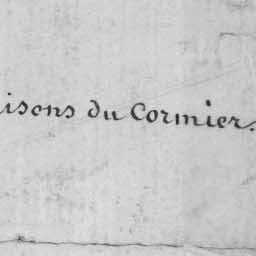 isons du Cormier.